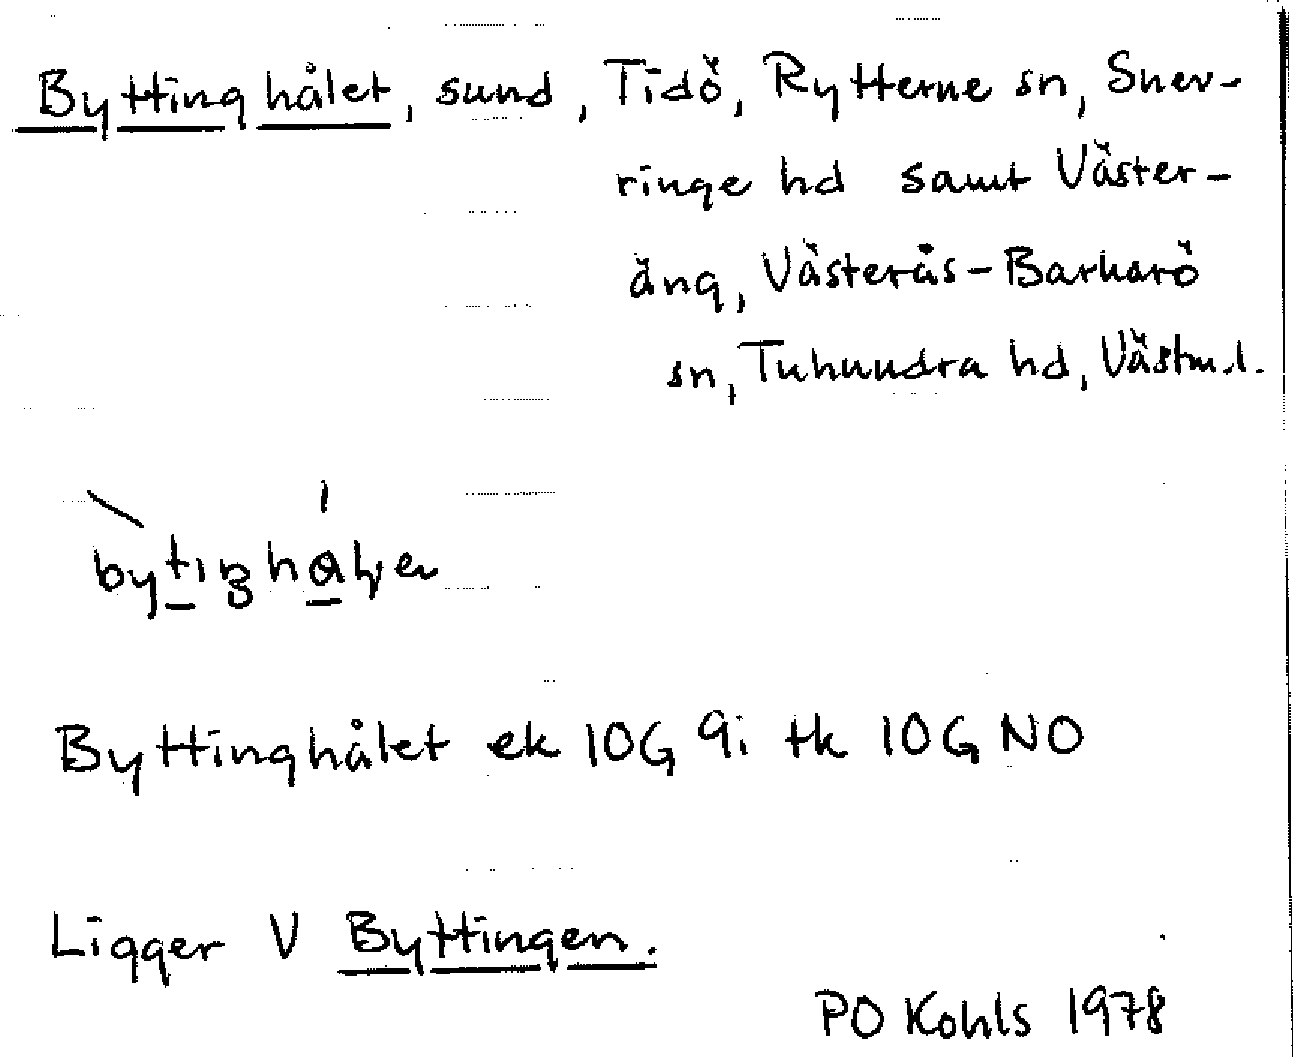 Byttinghålet, sund, Tidö, Rytterne sn, Snev-
ringe hd samt Väster-
äng, Västerås-Barkarö
sn, Tuhundra hd, Västml.
Byttinghålet ek 10G 9i tk 10G NO
Ligger V Byttingen.
PO Kohls 1978